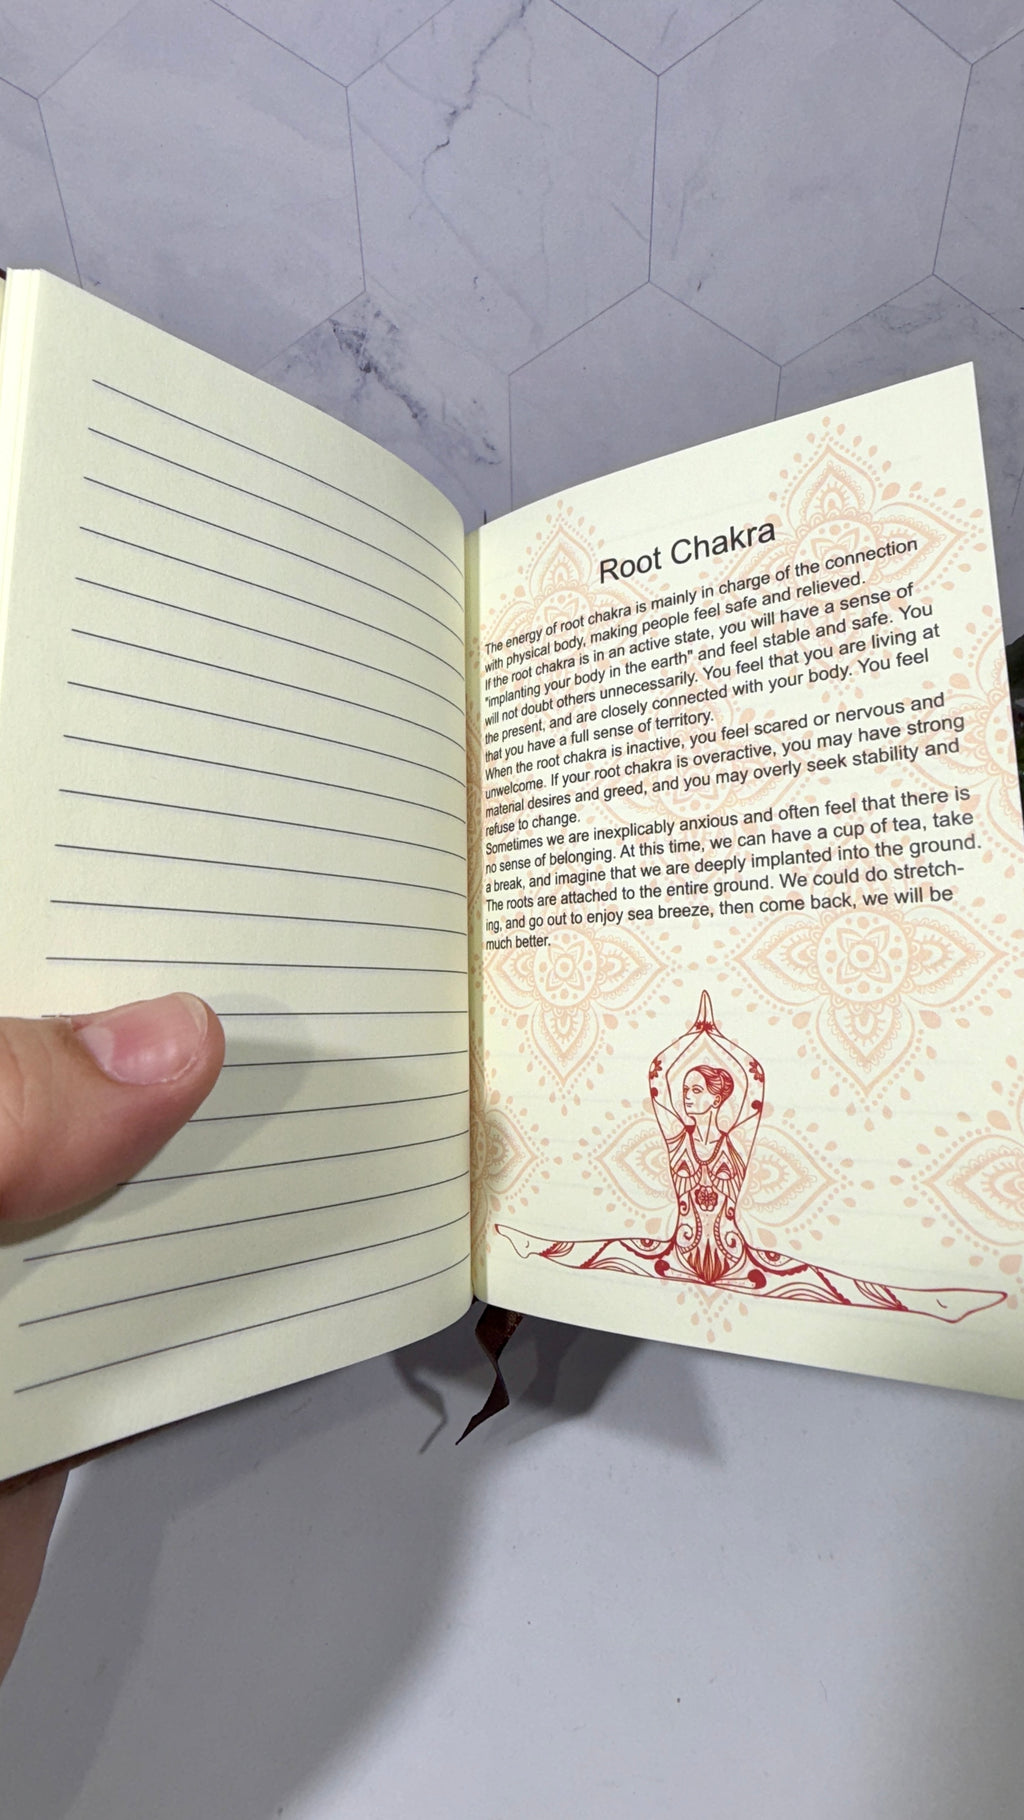 Root Chakra
The energy of root chakra is mainly in charge of the connection
with physical body, making people feel safe and relieved.
If the root chakra is in an active state, you will have a sense of
"implanting your body in the earth" and feel stable and safe. You
will not doubt others unnecessarily. You feel that you are living at
the present, and are closely connected with your body. You feel
that you have a full sense of territory.
When the root chakra is inactive, you feel scared or nervous and
unwelcome. If your root chakra is overactive, you may have strong
material desires and greed, and you may overly seek stability and
refuse to change.
Sometimes we are inexplicably anxious and often feel that there is
no sense of belonging. At this time, we can have a cup of tea, take
a break, and imagine that we are deeply implanted into the ground.
The roots are attached to the entire ground. We could do stretch-
ing, and go out to enjoy sea breeze, then come back, we will be
much better.